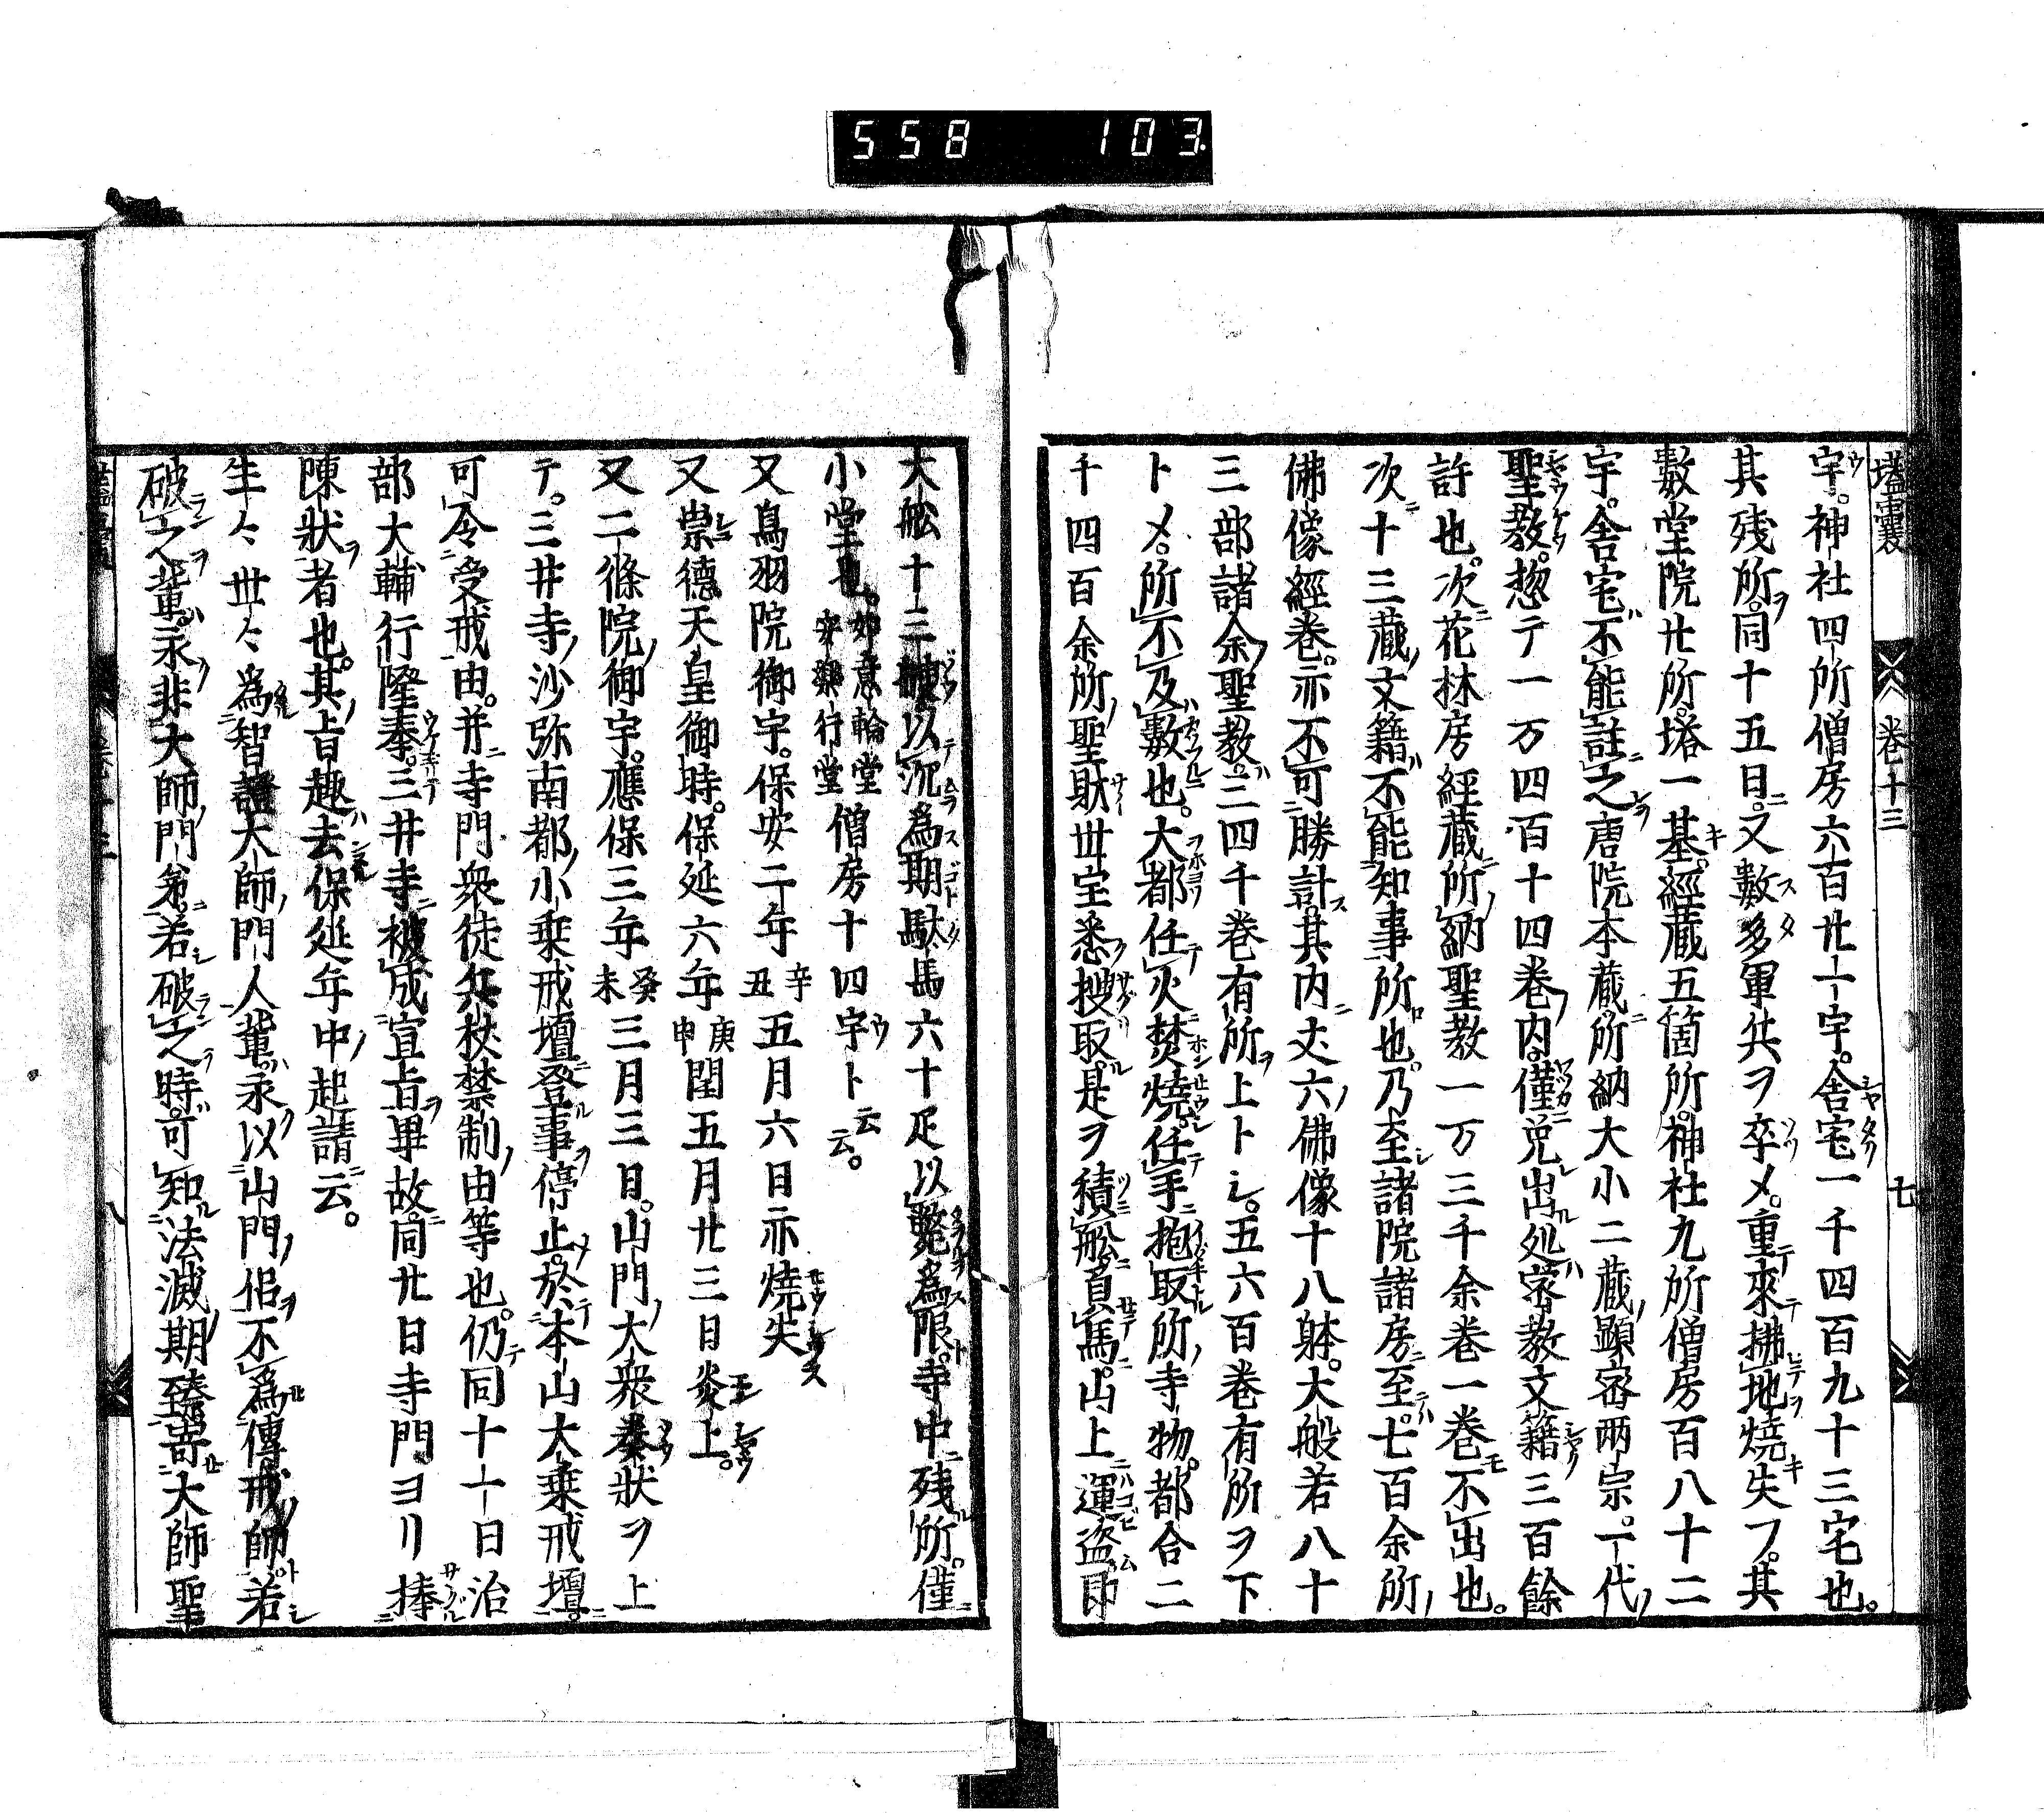 558 103
壒囊 卷十三 七
宇。神社四所僧房六百廿一宇。舎宅一千四百九十三宅也。
其残所。同十五日。又數多軍兵ヲ卒メ。重來拂地燒失フ。其
數堂院廿所。塔一基。經蔵五箇所。神社九所僧房百八十二
宇。舎宅不能註之唐院本蔵所納大小二蔵顯密兩宗。一代
聖教。惣テ一万四百十四巻内。僅免出処密教文籍三百餘
許也。次花林房經蔵所納聖教一万三千余巻一巻不出也。
次十三蔵文籍不能知事所也。乃至諸院諸房至。七百余所
佛像經巻。亦不可勝計。其内丈六佛像十八躰。大般若八十
三部諸余聖教。三四千巻有所上トシ。五六百巻有所ヲ下
トメ。所不及數也。大都任火焚燒。任手抱取所寺物。都合二
千四百余所聖財世宝悉搜取。是ヲ積舩負馬。山上運盗即
大舩十二艘以沉為期駄馬六十疋以斃為限。寺中残所。僅
小堂也。如意輪堂 安樂行堂 僧房十四宇ト云云。
又鳥羽院御宇。保安二年辛丑五月六日亦燒失
又崇德天皇御時。保延六年庚申閏五月廿三日炎上。
又二條院御宇。應保三年癸未三月三日。山門大衆奏狀ヲ上
テ。三井寺沙弥南都小乗戒壇登事停止。於本山大乗戒壇。
可令受戒由。并寺門衆徒兵杖禁制由等也。仍同十一日治
部大輔行隆奉。三井寺被成宣旨畢故。同廿日寺門ヨリ捧
陳狀者也。其旨趣去保延年中起請云。
生々世々為智證大師門人輩。永以山門侶不為傳戒師。若
破之輩。永非大師門弟。若破之時。可知法滅期臻耑大師聖
八